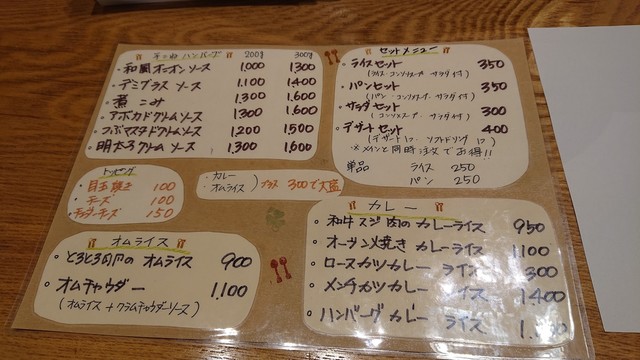 ハンバーグ 200g 300g
・和風オニオンソース 1,000 1,300
・デミグラス ソース 1,100 1,400
・煮こみ 1,300 1,600
・アボカドクリームソース 1,300 1,600
・つぶマスタードクリームソース 1,200 1,500
・明太子クリームソース 1,300 1,600
トッピング
・目玉焼き 100
・チーズ 100
・チェダーチーズ 150
・カレー
・オムライス プラス 300で大盛
オムライス
・とろとろ卵の オムライス 900
・オムチャウダー 1,100
(オムライス+クラムチャウダーソース)
セットメニュー
・ライスセット 350
(ライス・コンソメスープ・サラダ付)
・パンセット 350
(パン・コンソメスープ・サラダ付)
・サラダセット 300
(コンソメスープ・サラダ付)
・デザートセット 400
(デザート1コ・ソフトドリンク1コ)
※メインと同時注文でお得!!
単品 ライス 250
パン 250
カレー
・和牛スジ肉の カレーライス 950
・オーブン焼き カレーライス 1,100
・ロースカツカレー ライス
・メンチカツカレー ライス 1,400
・ハンバーグ カレー ライス